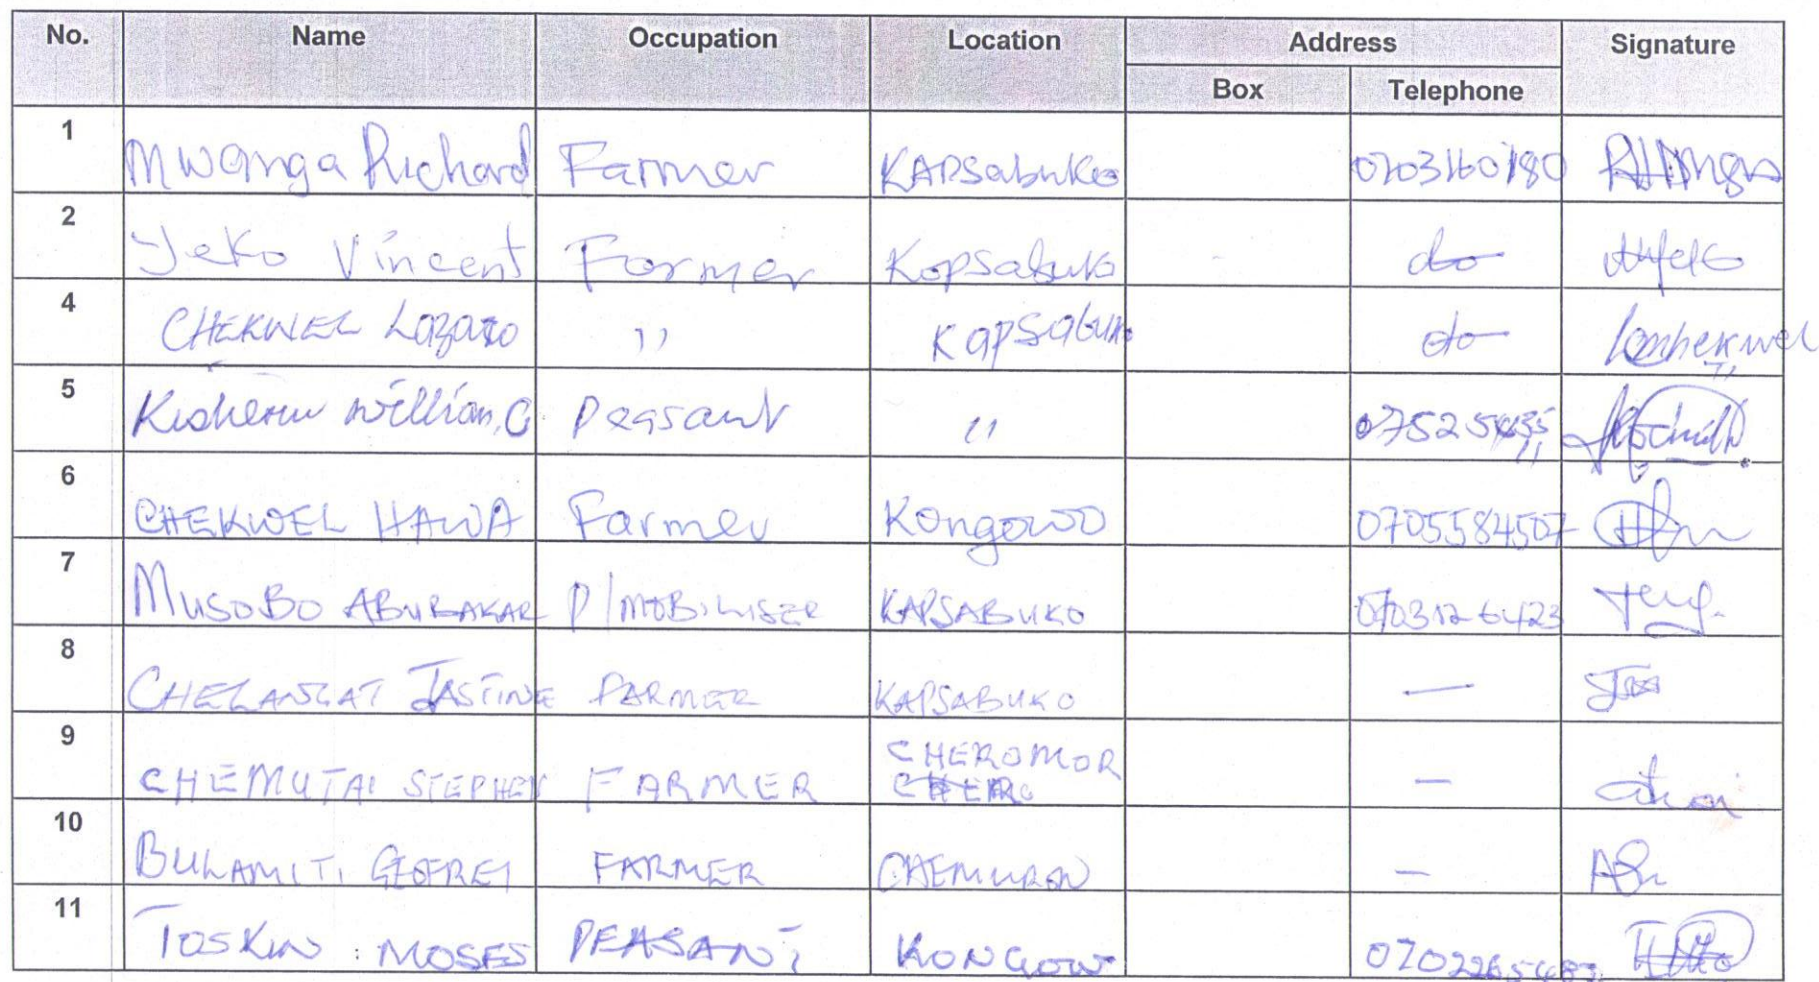 No. Name Occupation Location Address Signature
Box Telephone
1 Mwanga Richard Farmer KAPSabuko 0703160780
2 Yeko Vincent Farmer Kapsabuko do
4 CHEKWEL Lazaro ,, Kapsabuko do
5 William, C. Peasant ,,
6 CHEKWEL HAWA Farmer Kongowo 0705584507
7 MUSOBO ABUBAKAR P/MOBILISER KAPSABUKO
8 CHELANGAT JASTINE FARMER KAPSABUKO —
9 CHEMUTAI STEPHEN FARMER CHEROMOR —
10 BULAMITI GEOFREY FARMER —
11 TOSKIN : MOSES PEASANT KONGOW